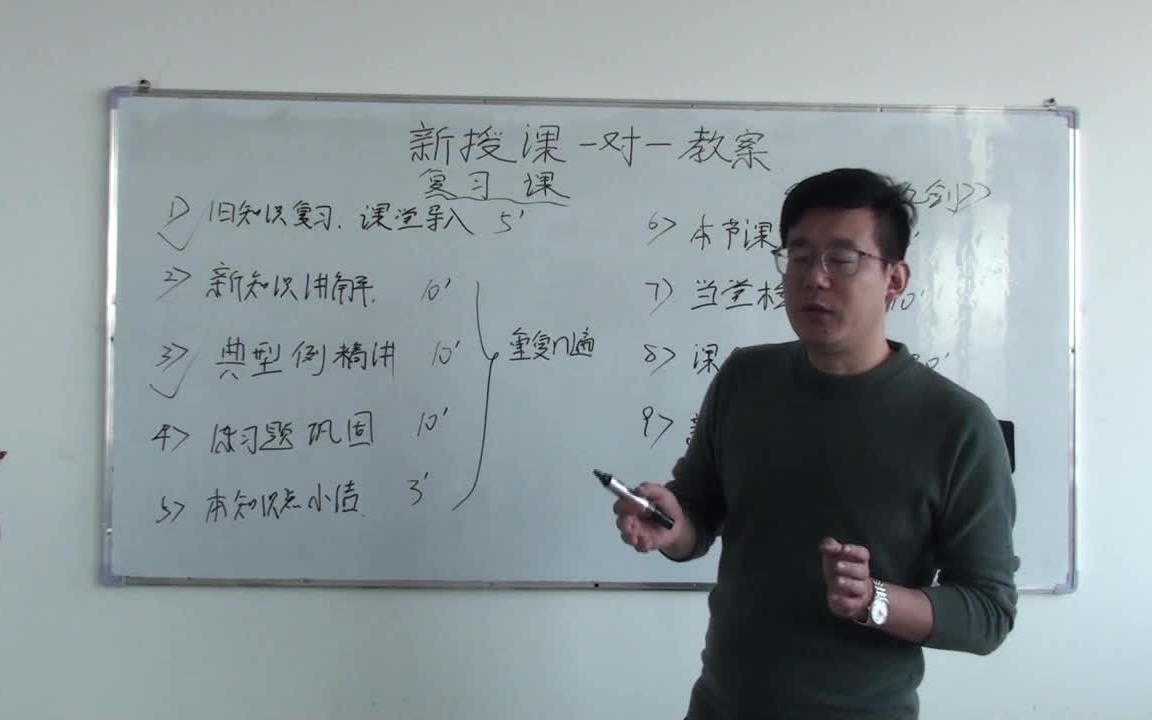 新授课一对一教案
复习课
剑>>
1> 旧知识复习、课堂导入 5'
2> 新知识讲解. 10'
3> 典型例精讲 10'
4> 练习题巩固 10'
5> 本知识点小结. 3'
重复n遍
6> 本节课
7> 当堂检 10'
8> 课 0'
9>